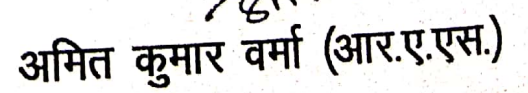 अमित कुमार वर्मा (आर.ए.एस.)